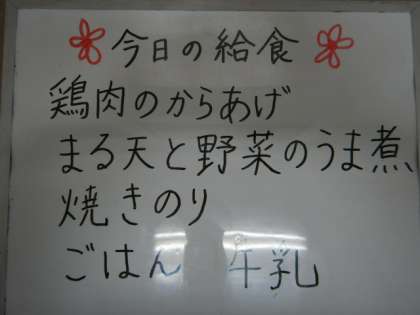 今日の給食
鶏肉のからあげ
まる天と野菜のうま煮
焼きのり
ごはん 牛乳